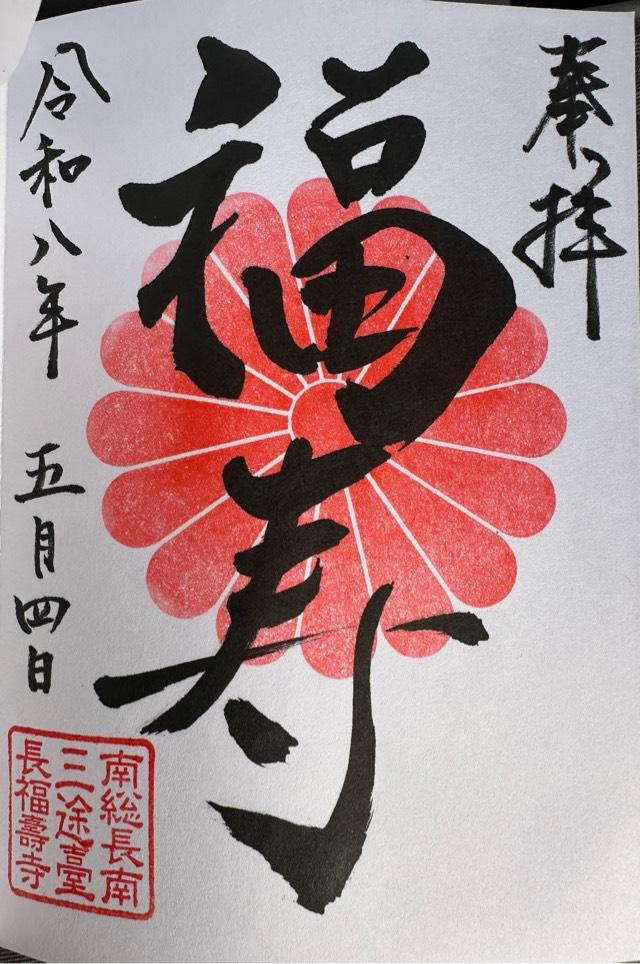 奉拝
福寿
令和八年 五月四日
南総長南
三途臺
長福壽寺